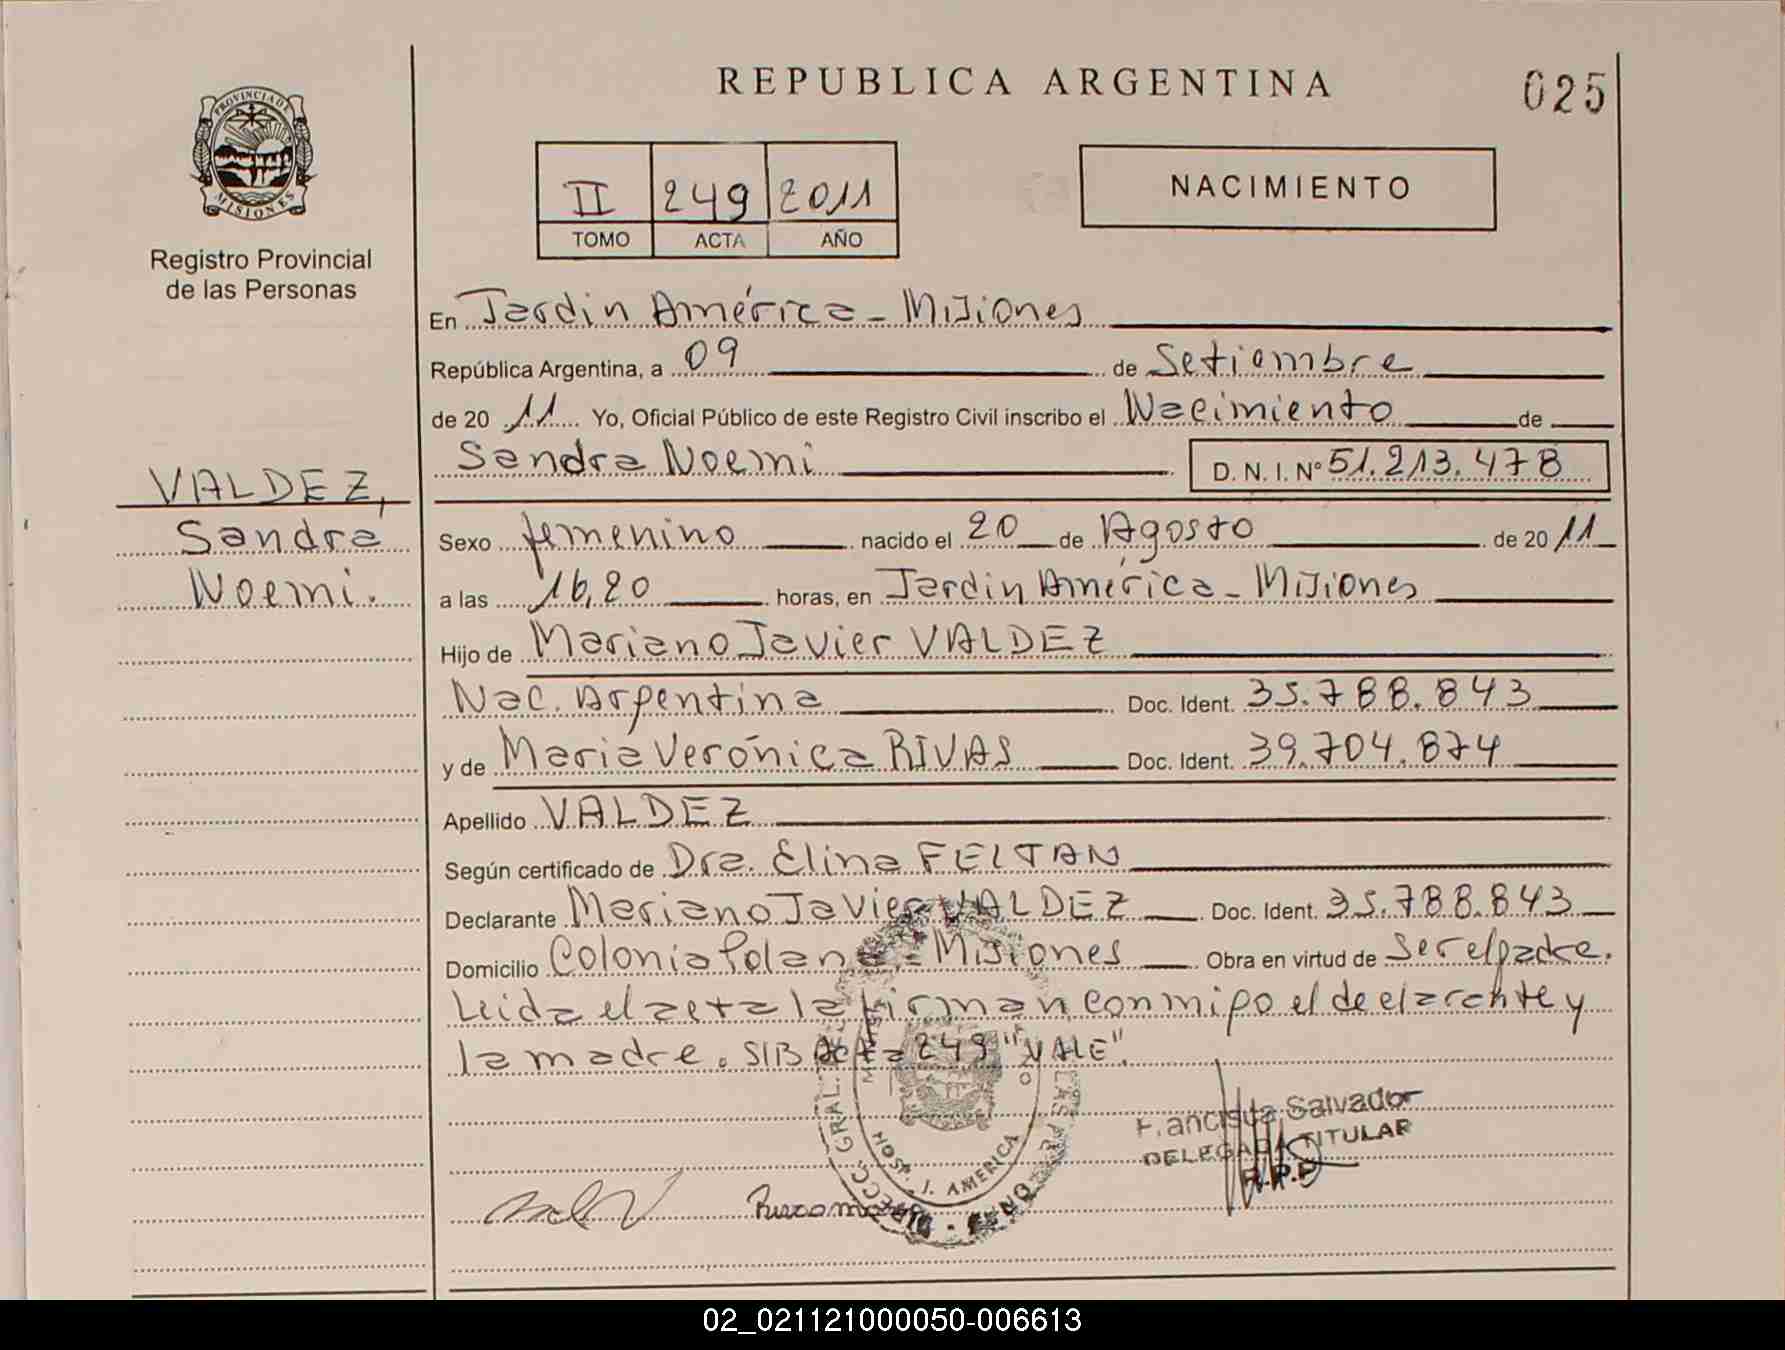 REPUBLICA ARGENTINA
025
PROVINCIA DE MISIONES
Registro Provincial
de las Personas
II 249 2011
TOMO ACTA AÑO
NACIMIENTO
En Jardin América - Misiones
República Argentina, a 09 de Setiembre
de 20 11 Yo, Oficial Público de este Registro Civil inscribo el Nacimiento de
Sandra Noemi D. N. I. Nº 51.213.478
VALDEZ,
Sandra
Noemi.
Sexo femenino nacido el 20 de Agosto de 20 11
a las 16,20 horas, en Jardin América - Misiones
Hijo de Mariano Javier VALDEZ
Nac. Argentina Doc. Ident. 35.788.843
y de Maria Verónica RIVAS Doc. Ident. 39.704.874
Apellido VALDEZ
Según certificado de Dra. Elina FELTAN
Declarante Mariano Javier VALDEZ Doc. Ident. 35.788.843
Domicilio Colonia Polana - Misiones Obra en virtud de Ser el padre.
Leida el acta la firman conmigo el declarante y
la madre. S/B Acta 249 "VALE".
Francisca Salvador
DELEGADA TITULAR
R.P.P
J. AMERICA
02_021121000050-006613